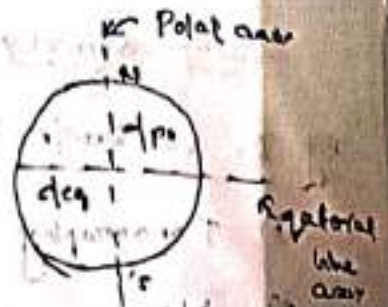 Polar axis
N
dpo
deq
Eqatorial
line
S